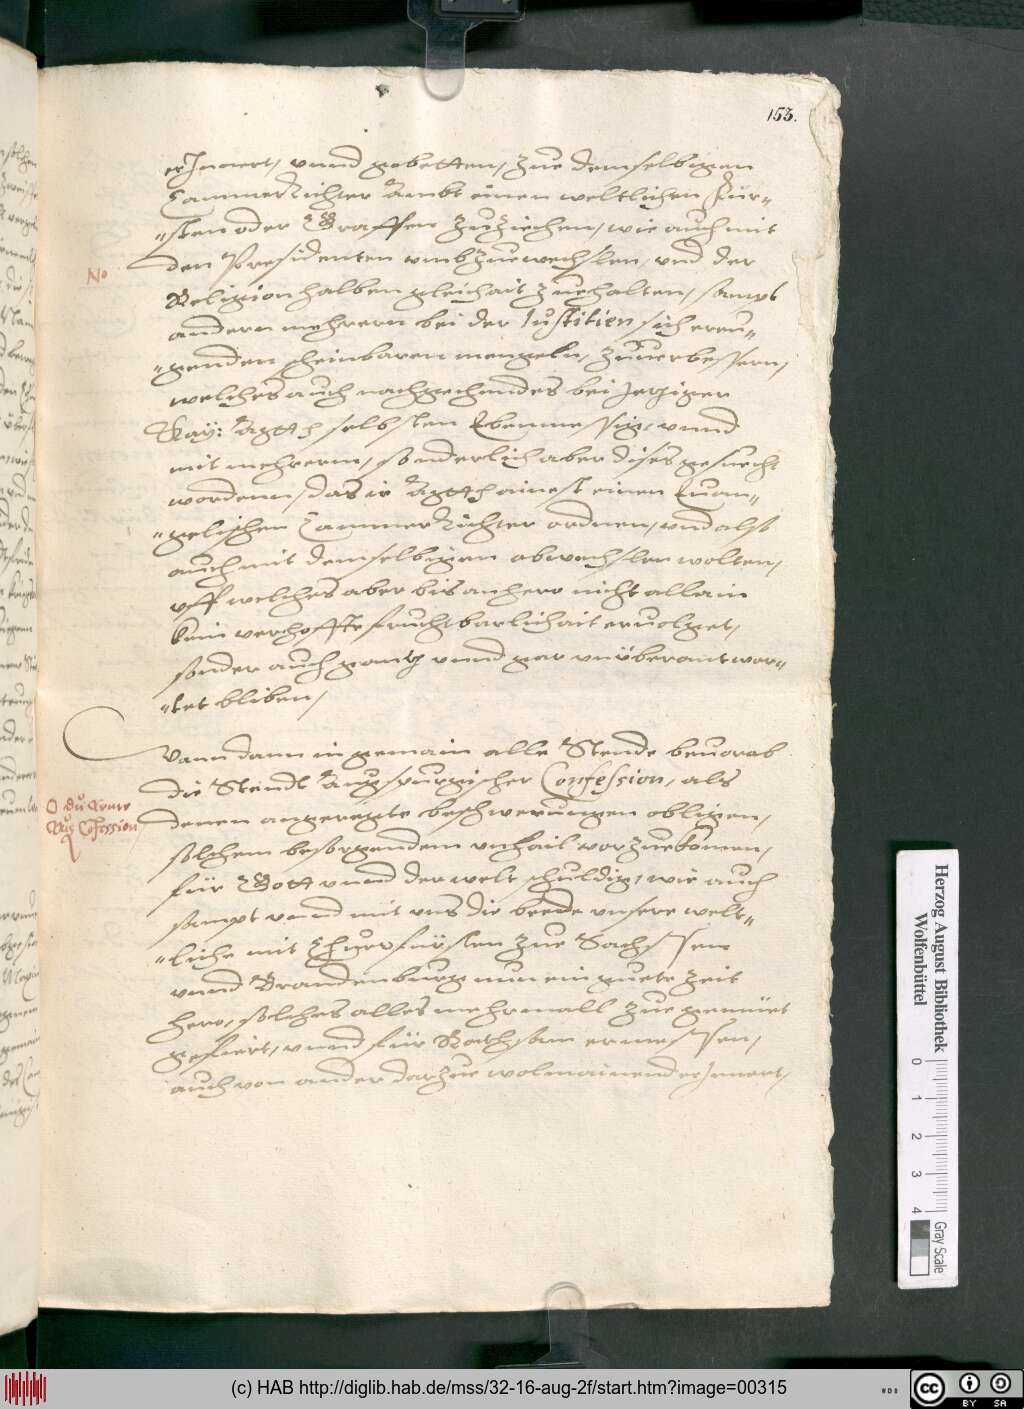 153.
erJnnert, vnnd gebetten, zue demselbigen
CammerRichter Ambt einen weltlichen Für-
"sten oder Graffen zuziechen, wie auch mit
den Presidenten vmbzuewechslen, vnd der
No
Religion halben gleichait zuehalten, sampt
andern mehrern bei der Justitien sich ereu-
"genden scheinbaren mengeln, zuuerbessern,
welches auch nachgehendes bei Jetziger
Kay: selbsten Ebenmessig, vnnd
mit mehrerm, sonderlich aber dises gesuecht
wordenn, das ir ainest einen Euan-
"gelischen CammerRichter ordnen, vnd alß
auch mit demselbigen abwechslen wolten,
vff welches aber bis anhero nicht allain
kein verhoffte fruchtbarlichait eruolget,
sonder auch gantz vnnd gar vnüberantwor-
"tet bliben,
Wann dann in gemain alle Stende beuorab
die Stendt Augspurgischer Confession, als
O du Arme
Aug Cofession
denen angeregte beschwerungen obligen,
solchem besorgendem vnhail vorzuekomen,
für Gott vnnd der welt schuldig, wie auch
sampt vnnd mit vns die beede vnsere welt-
"liche mit Churfürsten zue Sachssen
vnnd Brandenburg nun ein guete zeit
hero, solches alles mehrmall zue gemüet
gefiert, vnnd für Rathsam ermessen,
auch von ander darzue wolmainend erJnnert,
Herzog August Bibliothek
Wolfenbüttel
0 1 2 3 4
Gray Scale
(c) HAB http://diglib.hab.de/mss/32-16-aug-2f/start.htm?image=00315
WDB
cc BY SA